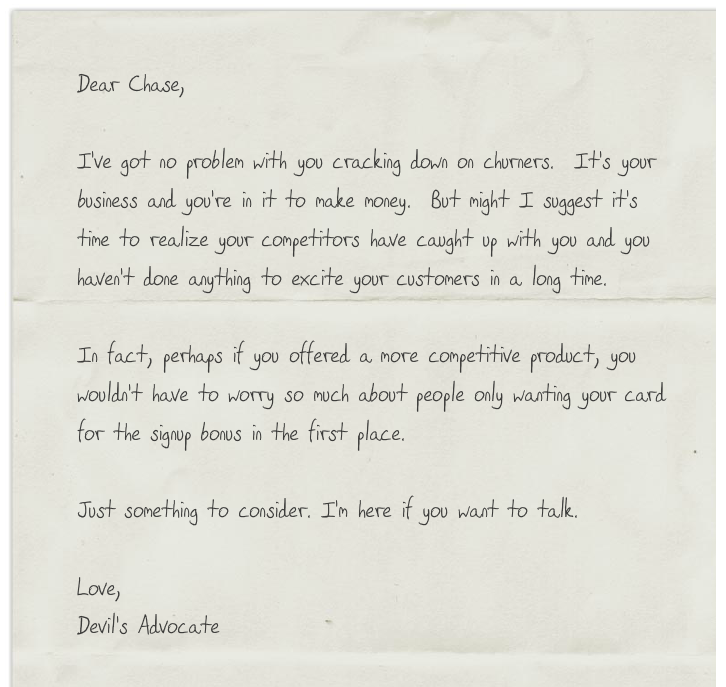 Dear Chase,
I've got no problem with you cracking down on churners. It's your
business and you're in it to make money. But might I suggest it's
time to realize your competitors have caught up with you and you
haven't done anything to excite your customers in a long time.
In fact, perhaps if you offered a more competitive product, you
wouldn't have to worry so much about people only wanting your card
for the signup bonus in the first place.
Just something to consider. I'm here if you want to talk.
Love,
Devil's Advocate